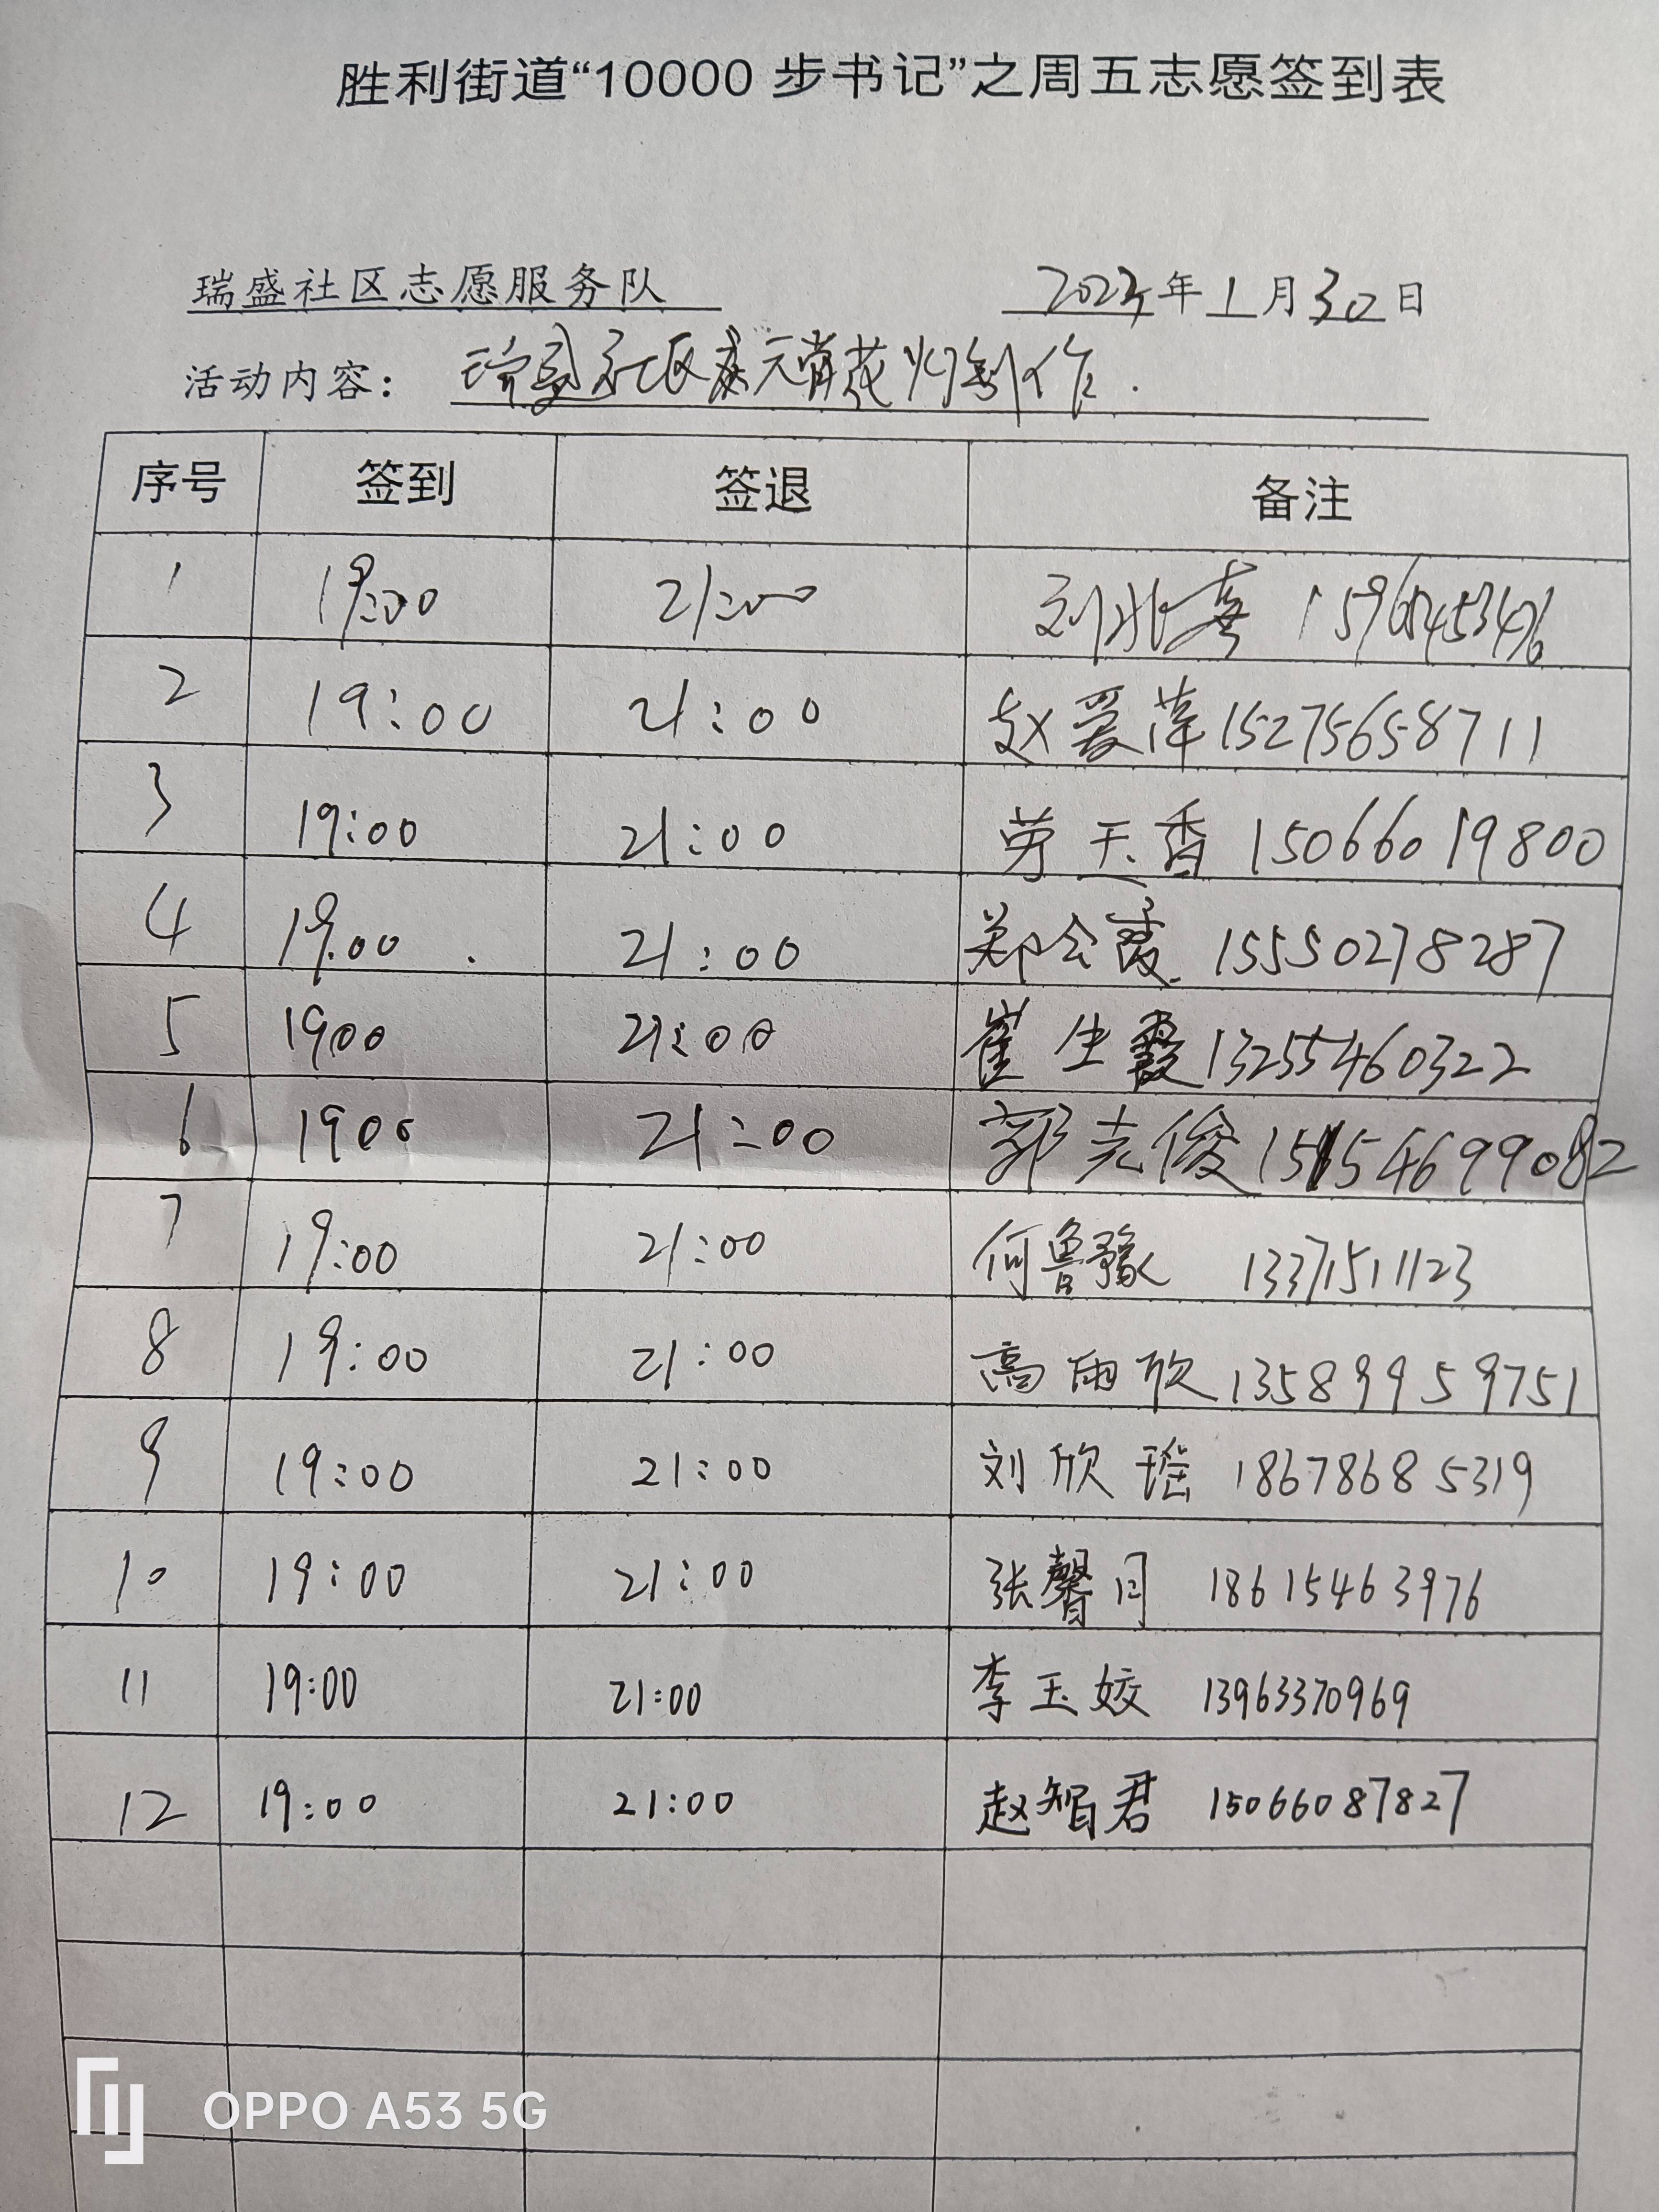 胜利街道“10000 步书记”之周五志愿签到表
瑞盛社区志愿服务队 年 1 月 30 日
活动内容： 瑞盛社区庆元宵花灯制作.
序号 签到 签退 备注
1 19:00 21:00 刘兆喜
2 19:00 21:00 赵爱萍 15275658711
3 19:00 21:00 劳玉香 15066019800
4 19.00 21:00 郑会霞 15550278287
5 1900 21:00 崔生霞 13255460322
6 1900 21:00 郭光俊 15154699082
7 19:00 21:00 何鲁豫 13371511123
8 19:00 21:00 高雨欣 13589959751
9 19:00 21:00 刘欣瑶 18678685319
10 19:00 21:00 张馨月 18615463976
11 19:00 21:00 李玉姣 13963370969
12 19:00 21:00 赵智君 15066087827
OPPO A53 5G